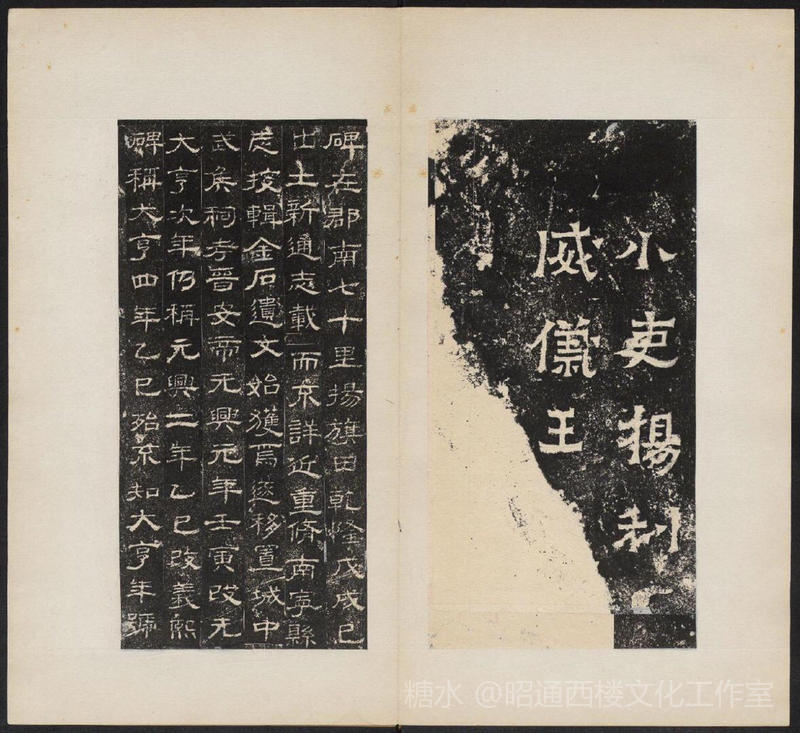 小吏揚利
威儀王
碑在郡南七十里揚旗田乾隆戊戌已
出土新通志載而未詳近重脩南寧縣
志按輯金石遺文始獲焉遂移置城中
武矦祠考晉安帝元興元年壬寅改元
大亨次年仍稱元興二年乙巳改義熙
碑稱大亨四年乙巳殆未知大亨年號
糖水 @昭通西楼文化工作室